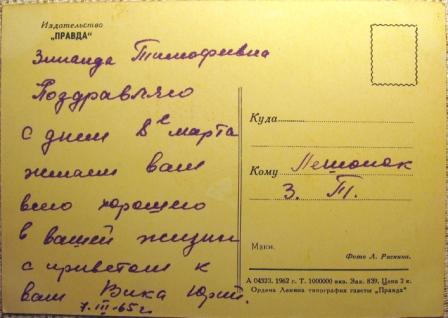 Издательство
„ПРАВДА"
Зинаида Тимофевна
Поздравляю
с днем 8е марта
желаем вам
всего хорошего
в вашей жизни
с приветом к
вам Вика Юрий.
7.III.65г
Куда
Кому
З. Т.
Маки.
Фото Л. Раскина.
А 04323. 1962 г. Т. 1000000 экз. Зак. 839. Цена 3 к.
Ордена Ленина типография газеты „Правда"